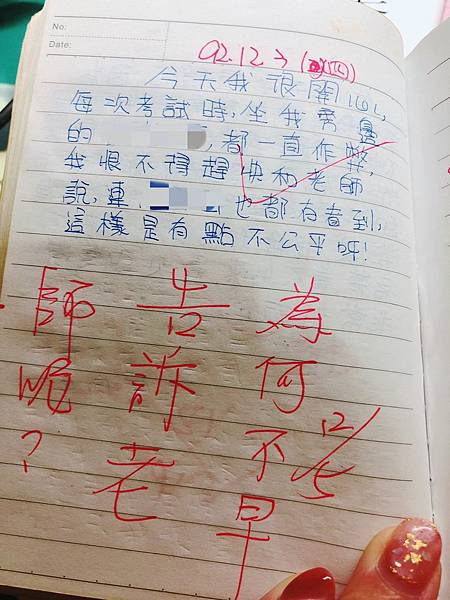 No:
Date:
92.12 (四)
今天我很開心,
每次考試時,坐我旁邊
的,都一直作弊,
我恨不得趕快和老師
說,連也都有看到,
這樣是有點不公平呀!
為何不早
告訴老
師呢?
12/5